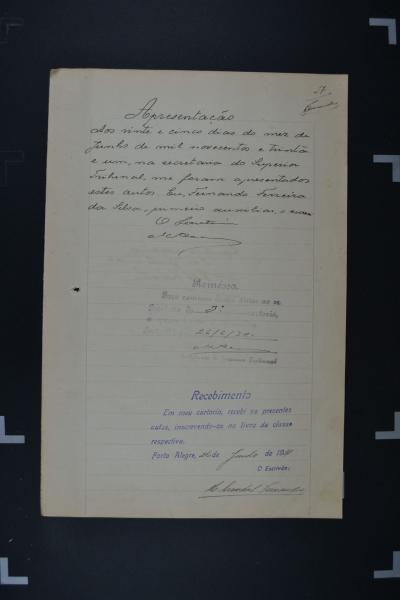 27
Apresentação
Aos vinte e cinco dias do mez de
Junho de mil novecentos e trinta
e um, na secretaria do Superior
Tribunal, me foram apresentados
estes autos. Eu, Fernando Ferreira
da Silva, primeiro auxiliar, o escrevi
O Secretario
Remessa
Faço remessa destes autos ao
2º cartorio,
Recebimento
Em meu cartorio, recebi os presentes
autos, inscrevendo-os no livro da classe
respectiva.
Porto Alegre, 26 de Junho de 1931
O Escrivão: